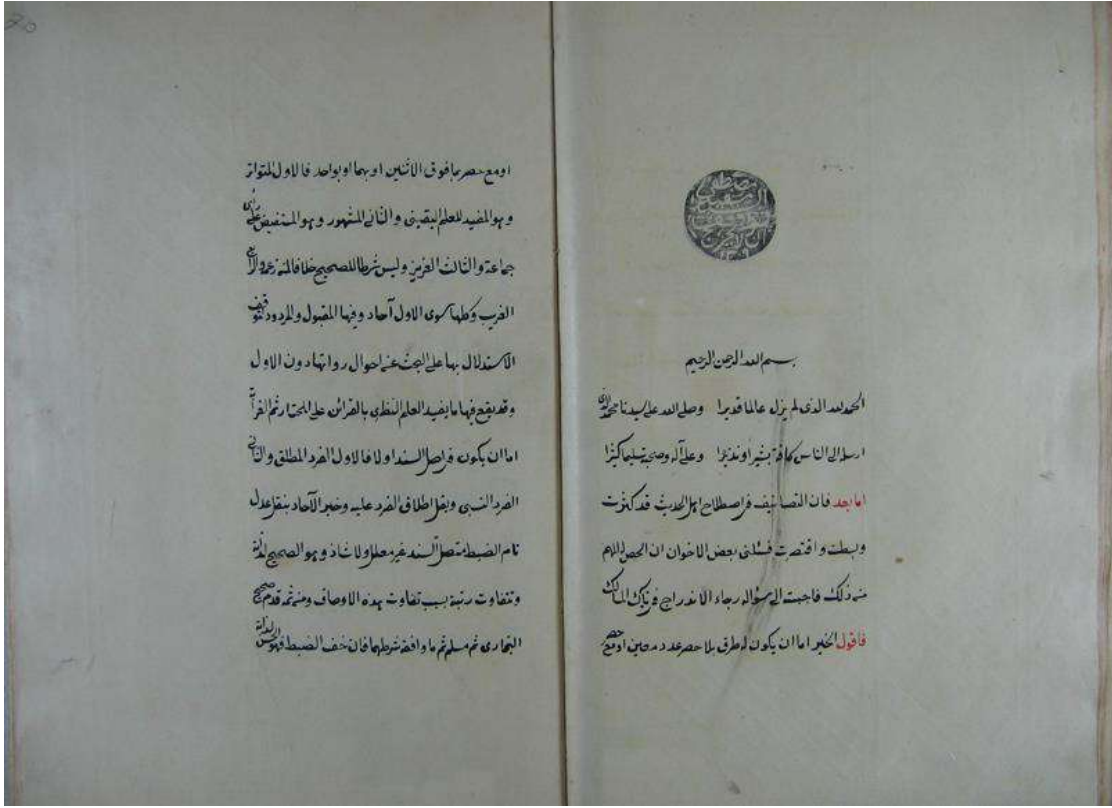 بسم الله الرحمن الرحيم
الحمد لله الذي لم يزل عالما قديرا وصلى الله على سيدنا محمد الذي
ارسله الى الناس كافة بشيرا ونذيرا وعلى آله وصحبه تسليما كثيرا
اما بعد فان التصانيف في اصطلاح اهل الحديث قد كثرت
وبسطت واختصرت فسئلني بعض الاخوان ان الخص له المهم
من ذلك فاجبته الى سؤاله رجاء الاندراج في تلك المسالك
فاقول الخبر اما ان يكون له طرق بلا حصر عدد معين او مع حصر
او مع حصر بما فوق الاثنين او بهما او بواحد فالاول المتواتر
وهو المفيد للعلم اليقيني والثاني المشهور وهو المستفيض على راى
جماعة والثالث العزيز وليس شرطا للصحيح خلافا لمن زعمه والرابع
الغريب وكلها سوى الاول آحاد وفيها المقبول والمردود لتوقف
الاستدلال بها على البحث عن احوال رواتها دون الاول
وقد يقع فيها ما يفيد العلم النظرى بالقرائن على المختار ثم الغرابة
اما ان يكون في اصل السند اولا فالاول الفرد المطلق والثاني
الفرد النسبى ويقل اطلاق الفرد عليه وخبر الآحاد بنقل عدل
تام الضبط متصل السند غير معلل ولا شاذ وهو الصحيح لذاته
وتتفاوت رتبة بسبب تفاوت هذه الاوصاف ومن ثمه قدم صحيح
البخارى ثم مسلم ثم ما وافقه شرطهما فان خف الضبط فهو الحسن لذاته